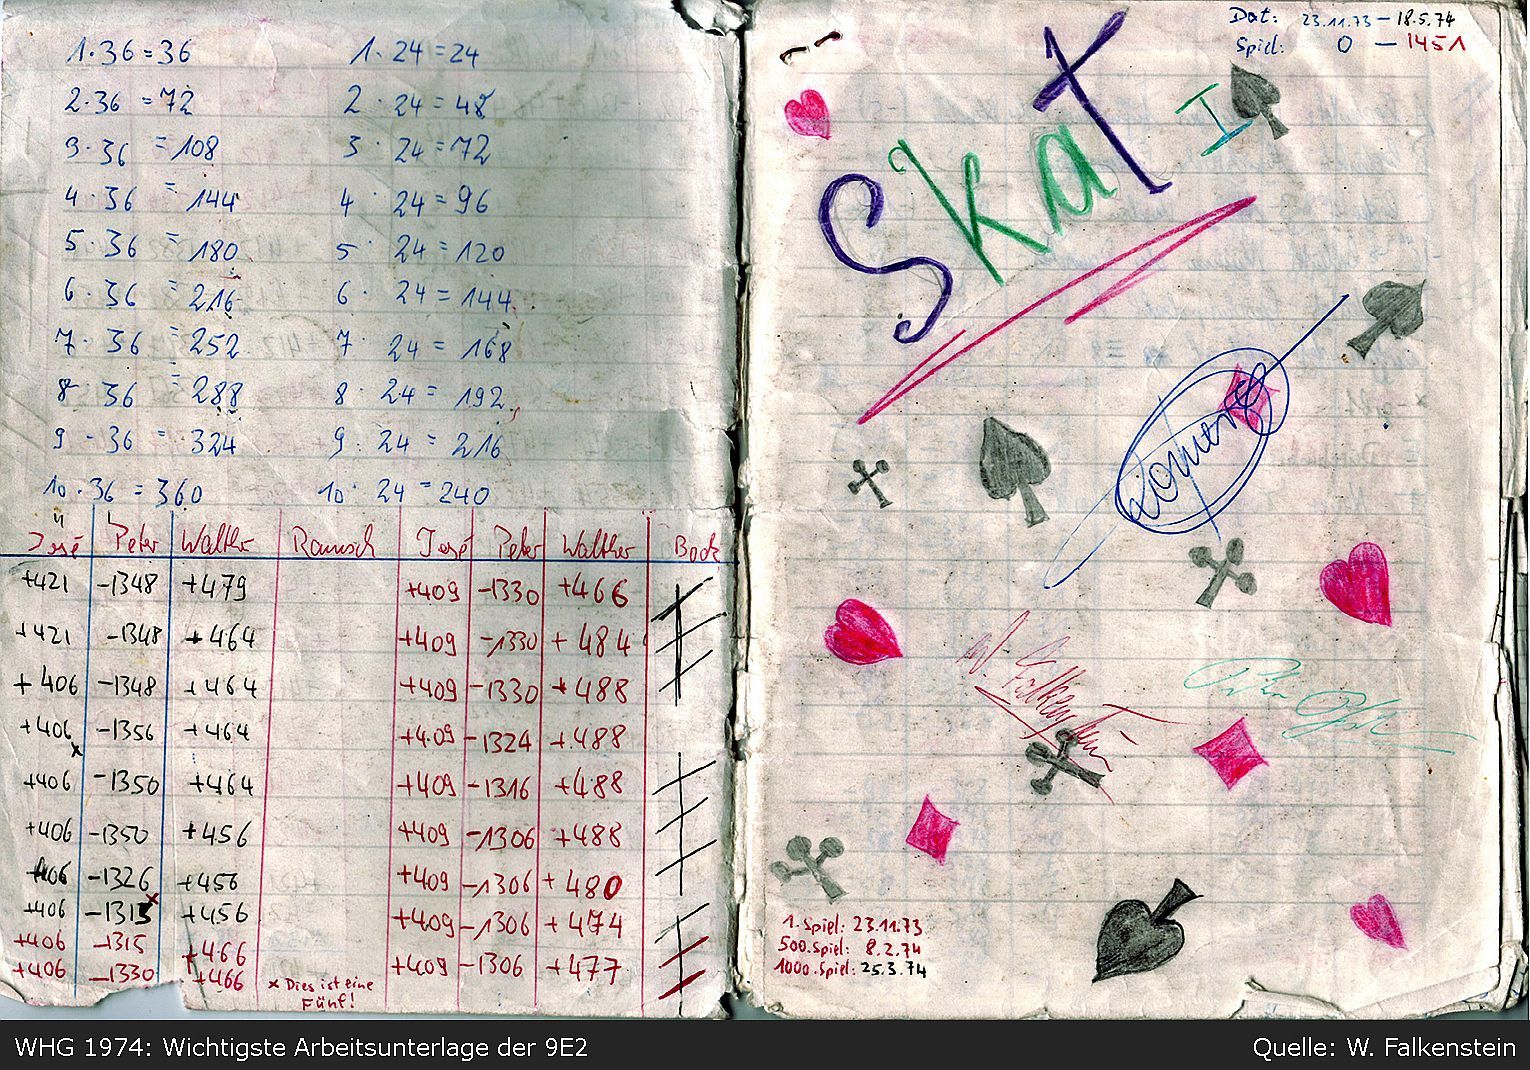 1·36=36 1·24=24
2·36=72 2·24=48
3·36=108 3·24=72
4·36=144 4·24=96
5·36=180 5·24=120
6·36=216 6·24=144
7·36=252 7·24=168
8·36=288 8·24=192
9·36=324 9·24=216
10·36=360 10·24=240
José Peter Walther Ramsch José Peter Walther Bock
+421 -1348 +479 +409 -1330 +466
+421 -1348 +464 +409 -1330 +484
+406 -1348 +464 +409 -1330 +488
+406 -1356 +464 +409 -1324 +488
x
+406 -1350 +464 +409 -1316 +488
+406 -1350 +456 +409 -1306 +488
+406 -1326 +456 +409 -1306 +480
+406 -1315 x +456 +409 -1306 +474
+406 -1315 +466
+406 -1330 +466 +409 -1306 +477
x Dies ist eine
Fünf!
Dat: 23.11.73 – 18.5.74
Spiel: 0 – 1451
Skat I
W. Falkenstein
1. Spiel: 23.11.73
500. Spiel: 8.2.74
1000. Spiel: 25.3.74
WHG 1974: Wichtigste Arbeitsunterlage der 9E2
Quelle: W. Falkenstein